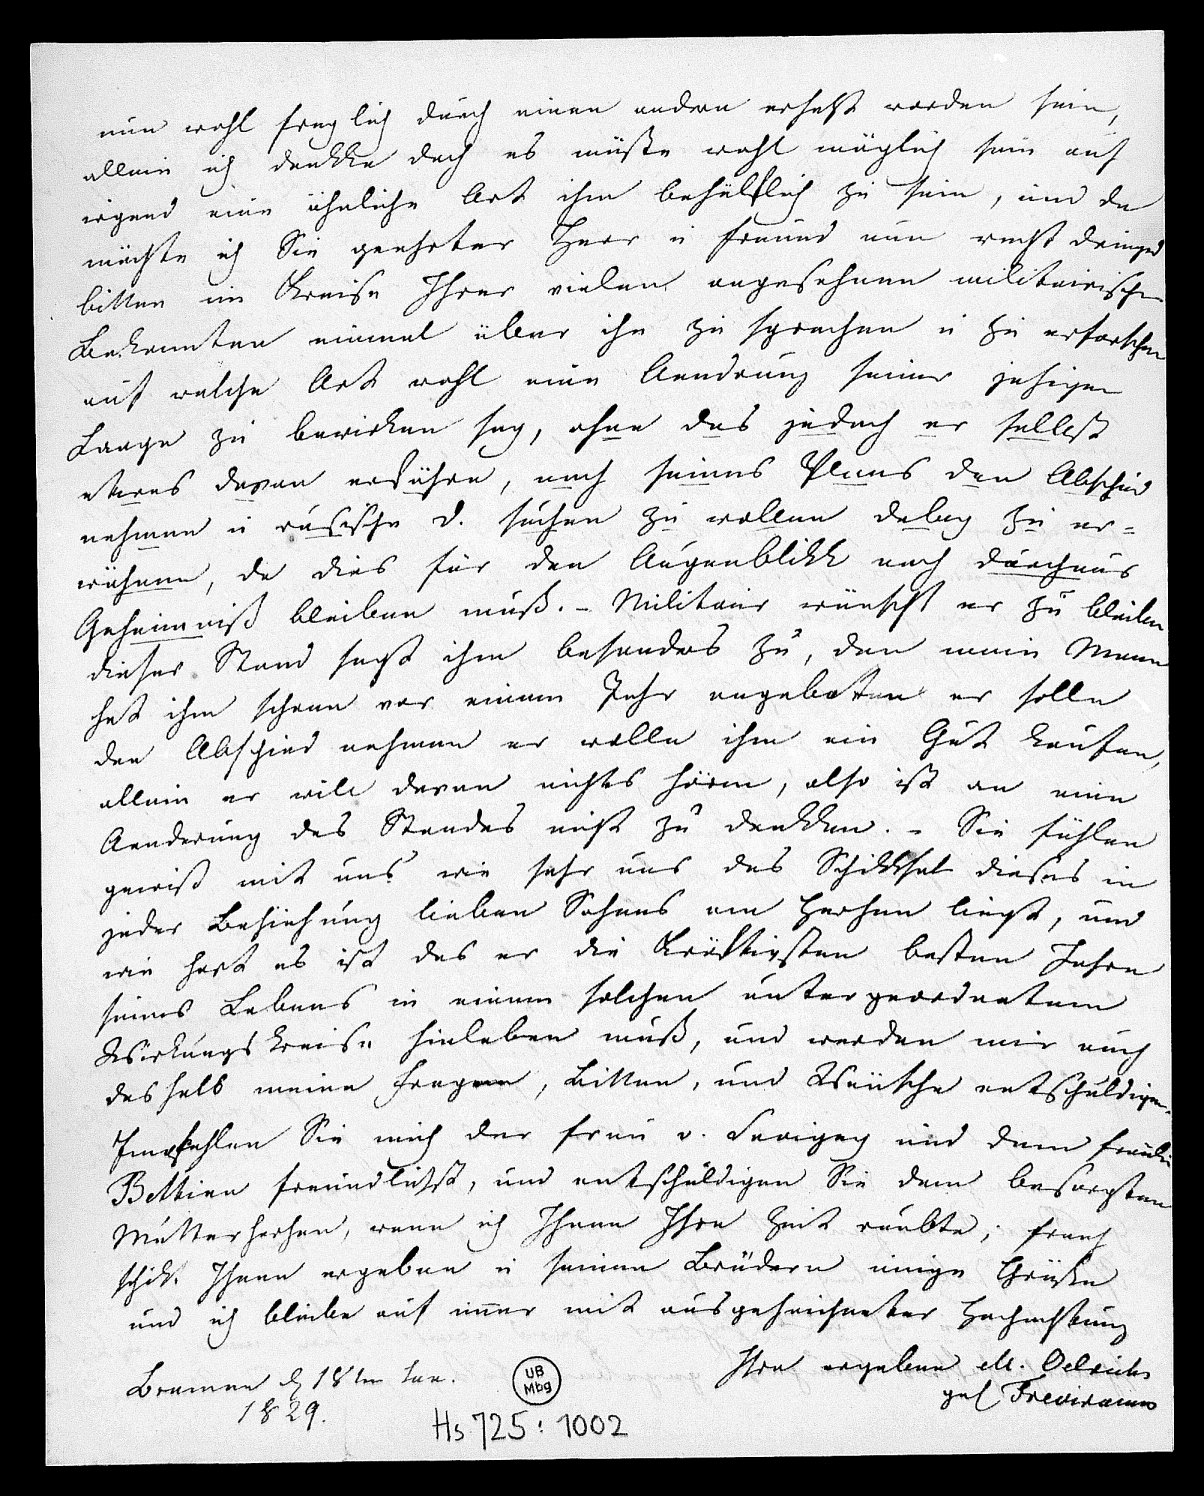 nun wohl freylich durch einen andren ersetzt worden sein,
allein ich denkke doch es müßte wohl möglich sein auf
irgend eine ähnliche Art ihm behülflich zu sein, und da
möchte ich Sie geehrter Herr u Freund nun recht dringend
bitten im Kreise Ihrer vielen angesehnen militairischen
Bekannten einmal über ihn zu sprechen u zu erforschen
auf welche Art wohl eine Aendrung seiner jetzigen
Laage zu bewirken sey, ohne das jedoch er selbst
etwas davon erführe, noch seines Plans den Abschied
nehmen u rusische D. suchen zu wollen dabey zu er=
wähnen, da dies für den Augenblikk noch durchaus
Geheimniß bleiben muß. – Militair wünscht er zu bleiben
dieser Stand sagt ihm besonders zu, den mein Mann
hat ihm schonn vor einem Jahr angeboten er solle
den Abschied nehmen er wolle ihm ein Gut kaufen,
allein er will davon nichts hören, also ist an eine
Aenderung des Standes nicht zu denkken. – Sie fühlen
gewiß mit uns wie sehr uns das Schikksal dieses in
jeder Beziehung lieben Sohnes am Herzen liegt, und
wie hart es ist das er die kräftigsten besten Jahre
seines Lebens in einem solchen untergeordnetem
Wirkungskreise hinleben muß, und werden mir auch
deshalb meine Fragen, Bitten, und Wünsche entschuldigen.
Empfehlen Sie mich der Frau v. Savigny und dem Fräulein
Bettina freundlichst, und entschuldigen Sie dem besorgten
Mutterherzen, wenn ich Ihnen Ihre Zeit raubte; Franz
schikt Ihnen ergeben u seinen Brüdern innige Grüße
und ich bleibe auf immer mit ausgezeichneter Hochachtung
Ihre ergebene M. Oelrichs
geb Treviranus
Bremen d 18ten Jan.
1829.
UB
Mbg
Hs 725: 1002